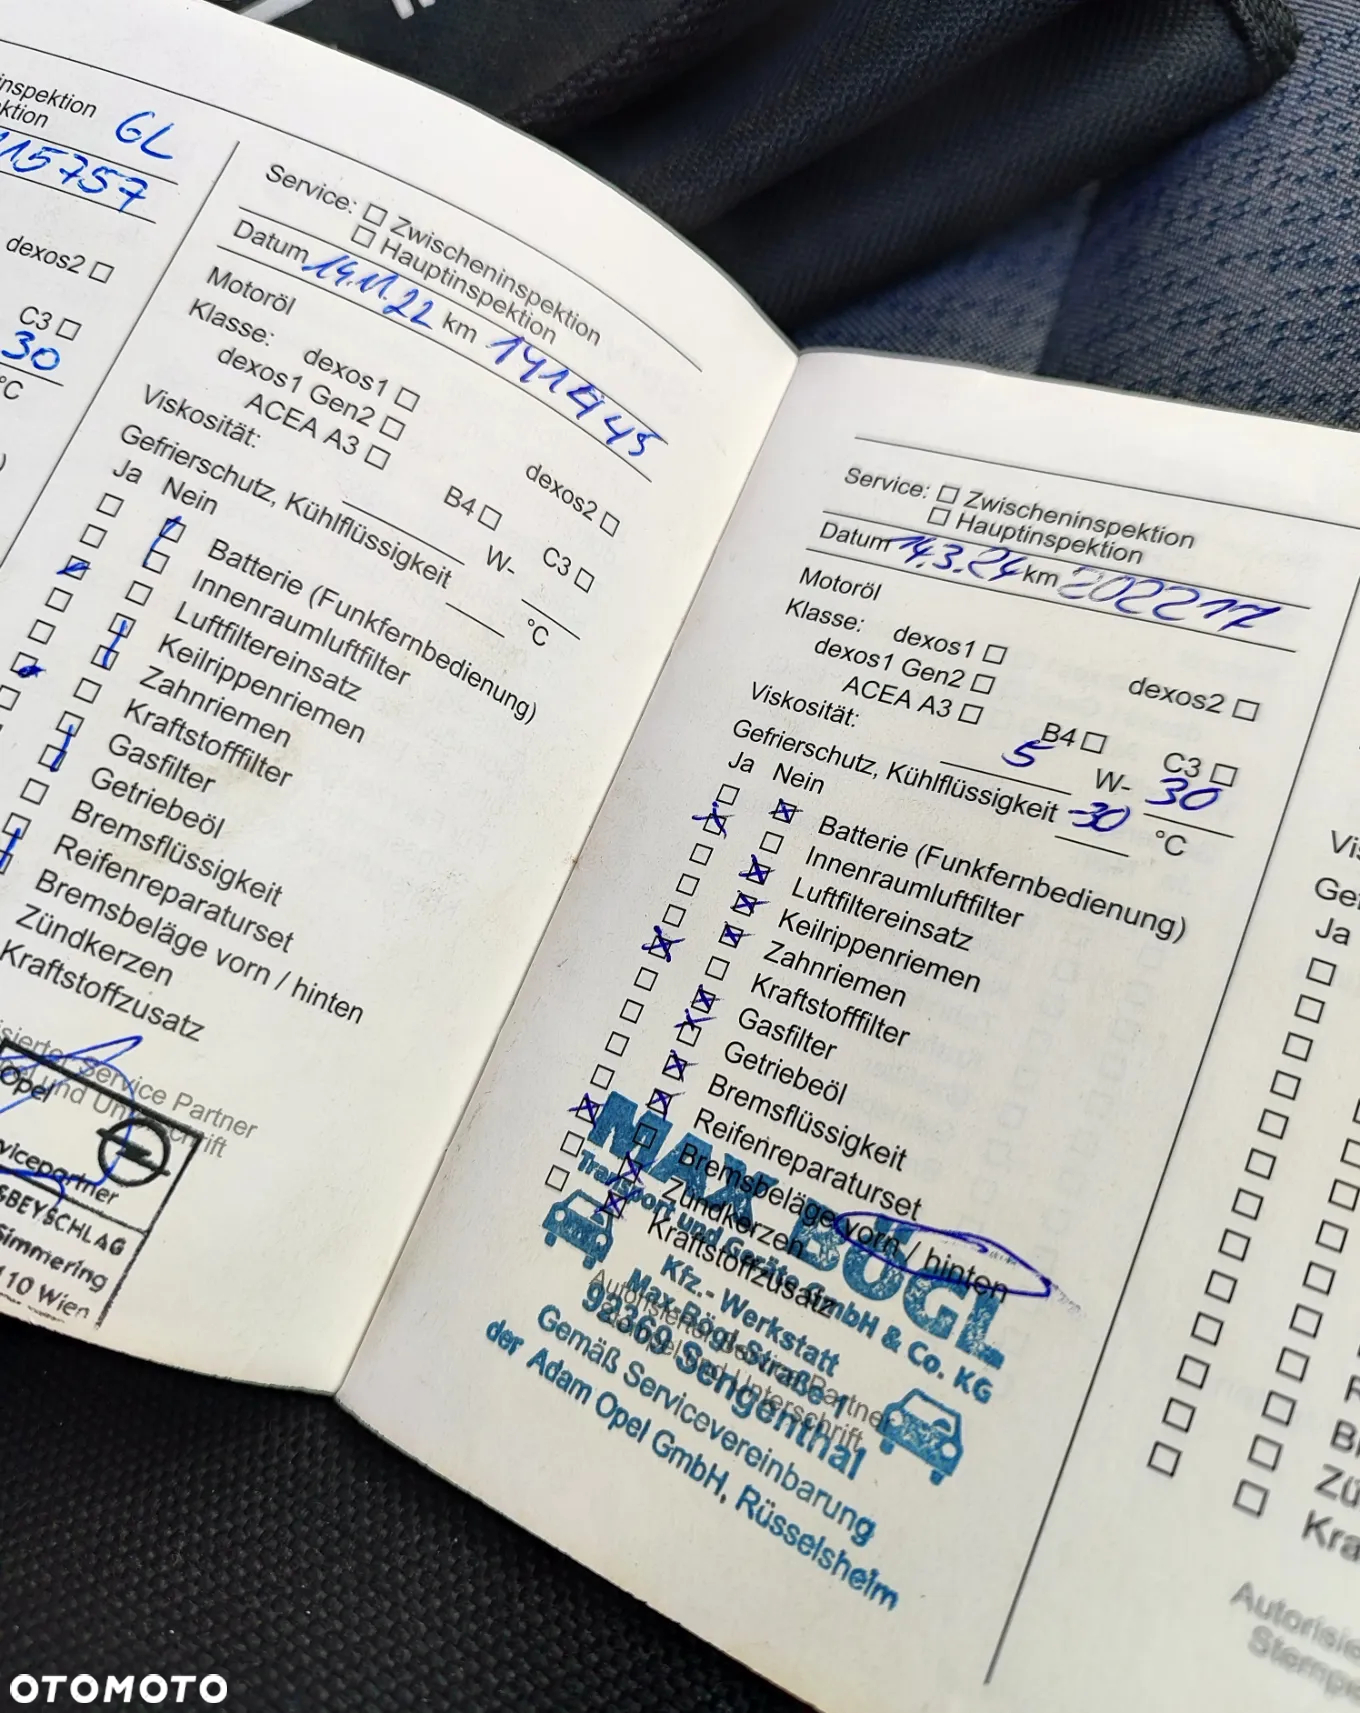 nspektion GL
ktion
115757
dexos2
C3
30
°C
Service: Zwischeninspektion
Hauptinspektion
Datum 14.11.22 km 141445
Motoröl
Klasse: dexos1
dexos1 Gen2 dexos2
ACEA A3 B4 C3
Viskosität: W-
Gefrierschutz, Kühlflüssigkeit °C
Ja Nein
Batterie (Funkfernbedienung)
Innenraumluftfilter
Luftfiltereinsatz
Keilrippenriemen
Zahnriemen
Kraftstofffilter
Gasfilter
Getriebeöl
Bremsflüssigkeit
Reifenreparaturset
Bremsbeläge vorn / hinten
Zündkerzen
Kraftstoffzusatz
sierter Service Partner
Opel
vicepartner
SBEYSCHLAG
Simmering
110 Wien
Service: Zwischeninspektion
Hauptinspektion
Datum 14.3.24 km 202217
Motoröl
Klasse: dexos1
dexos1 Gen2 dexos2
ACEA A3 B4 C3
Viskosität: 5 W- 30
Gefrierschutz, Kühlflüssigkeit -30 °C
Ja Nein
Batterie (Funkfernbedienung)
Innenraumluftfilter
Luftfiltereinsatz
Keilrippenriemen
Zahnriemen
Kraftstofffilter
Gasfilter
Getriebeöl
Bremsflüssigkeit
Reifenreparaturset
Bremsbeläge vorn / hinten
Zündkerzen
Kraftstoffzusatz
Autorisierter Service Partner
Stempel und Unterschrift
MAX BÖGL
Transport und Geräte GmbH & Co. KG
Kfz.- Werkstatt
Max-Bögl-Straße 1
92369 Sengenthal
Gemäß Servicevereinbarung
der Adam Opel GmbH, Rüsselsheim
Vis
Gef
Ja
R
B
Zü
Kra
Autorisie
Stempe
OTOMOTO